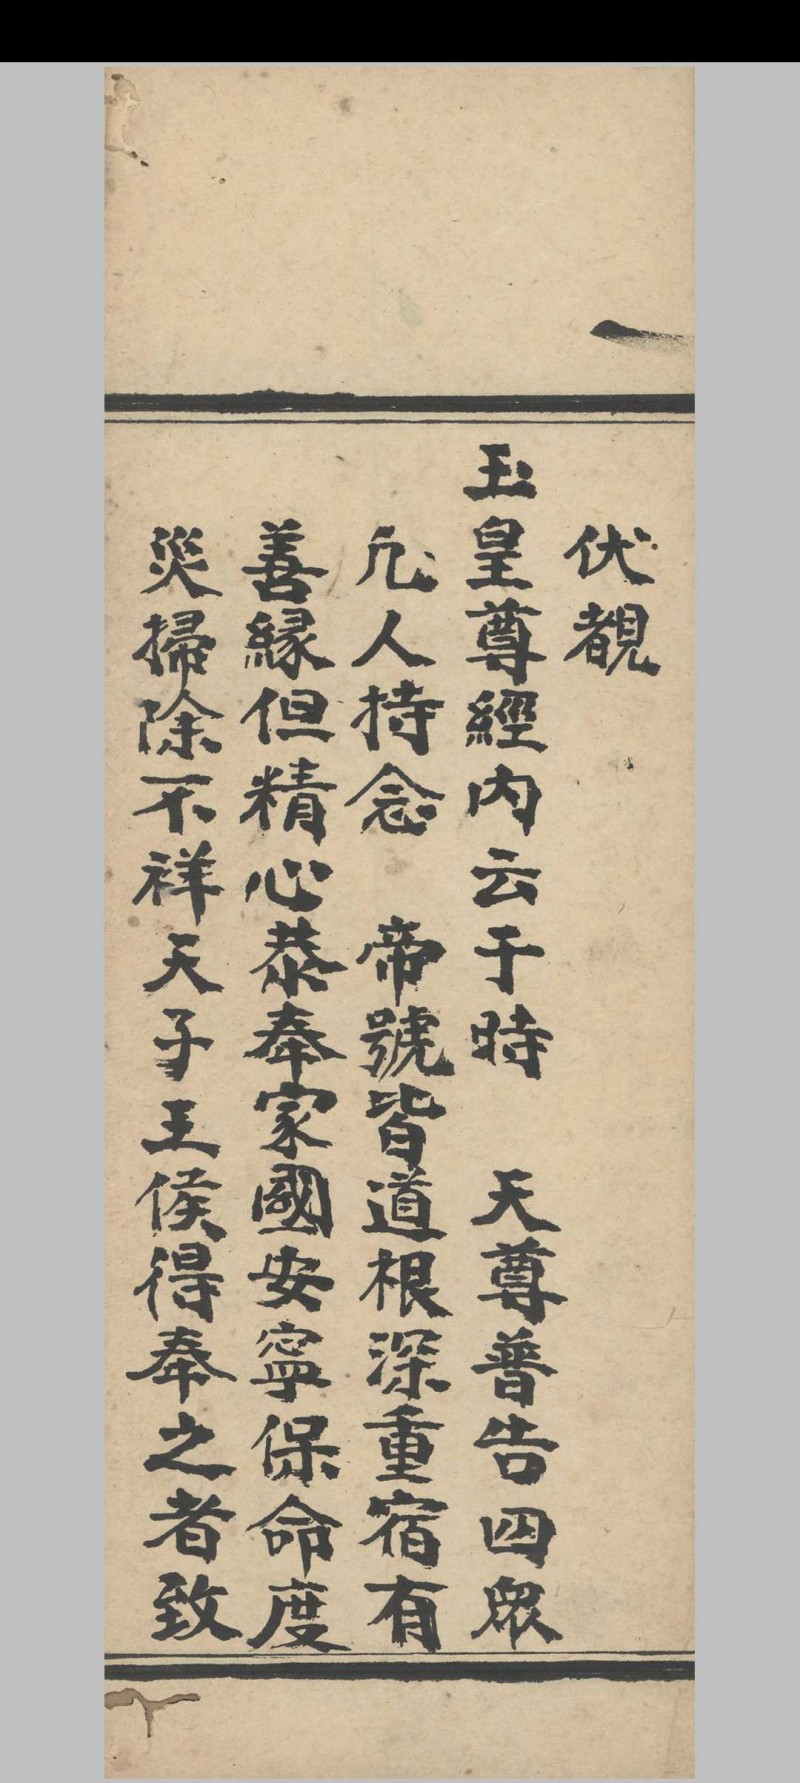 伏覩
玉皇尊經內云于時　天尊普告四衆
凢人持念　帝號皆道根深重宿有
善緣但精心恭奉家國安寧保命度
災掃除不祥天子王侯得奉之者致